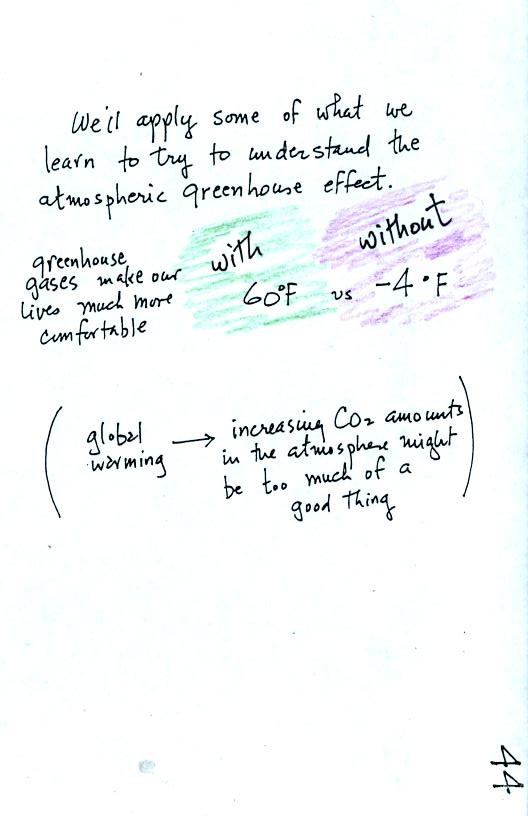 We'll apply some of what we
learn to try to understand the
atmospheric greenhouse effect.
greenhouse
gases make our
lives much more
comfortable
with
60°F
vs
without
-4°F
global
warming
→ increasing CO₂ amounts
in the atmosphere might
be too much of a
good thing
44